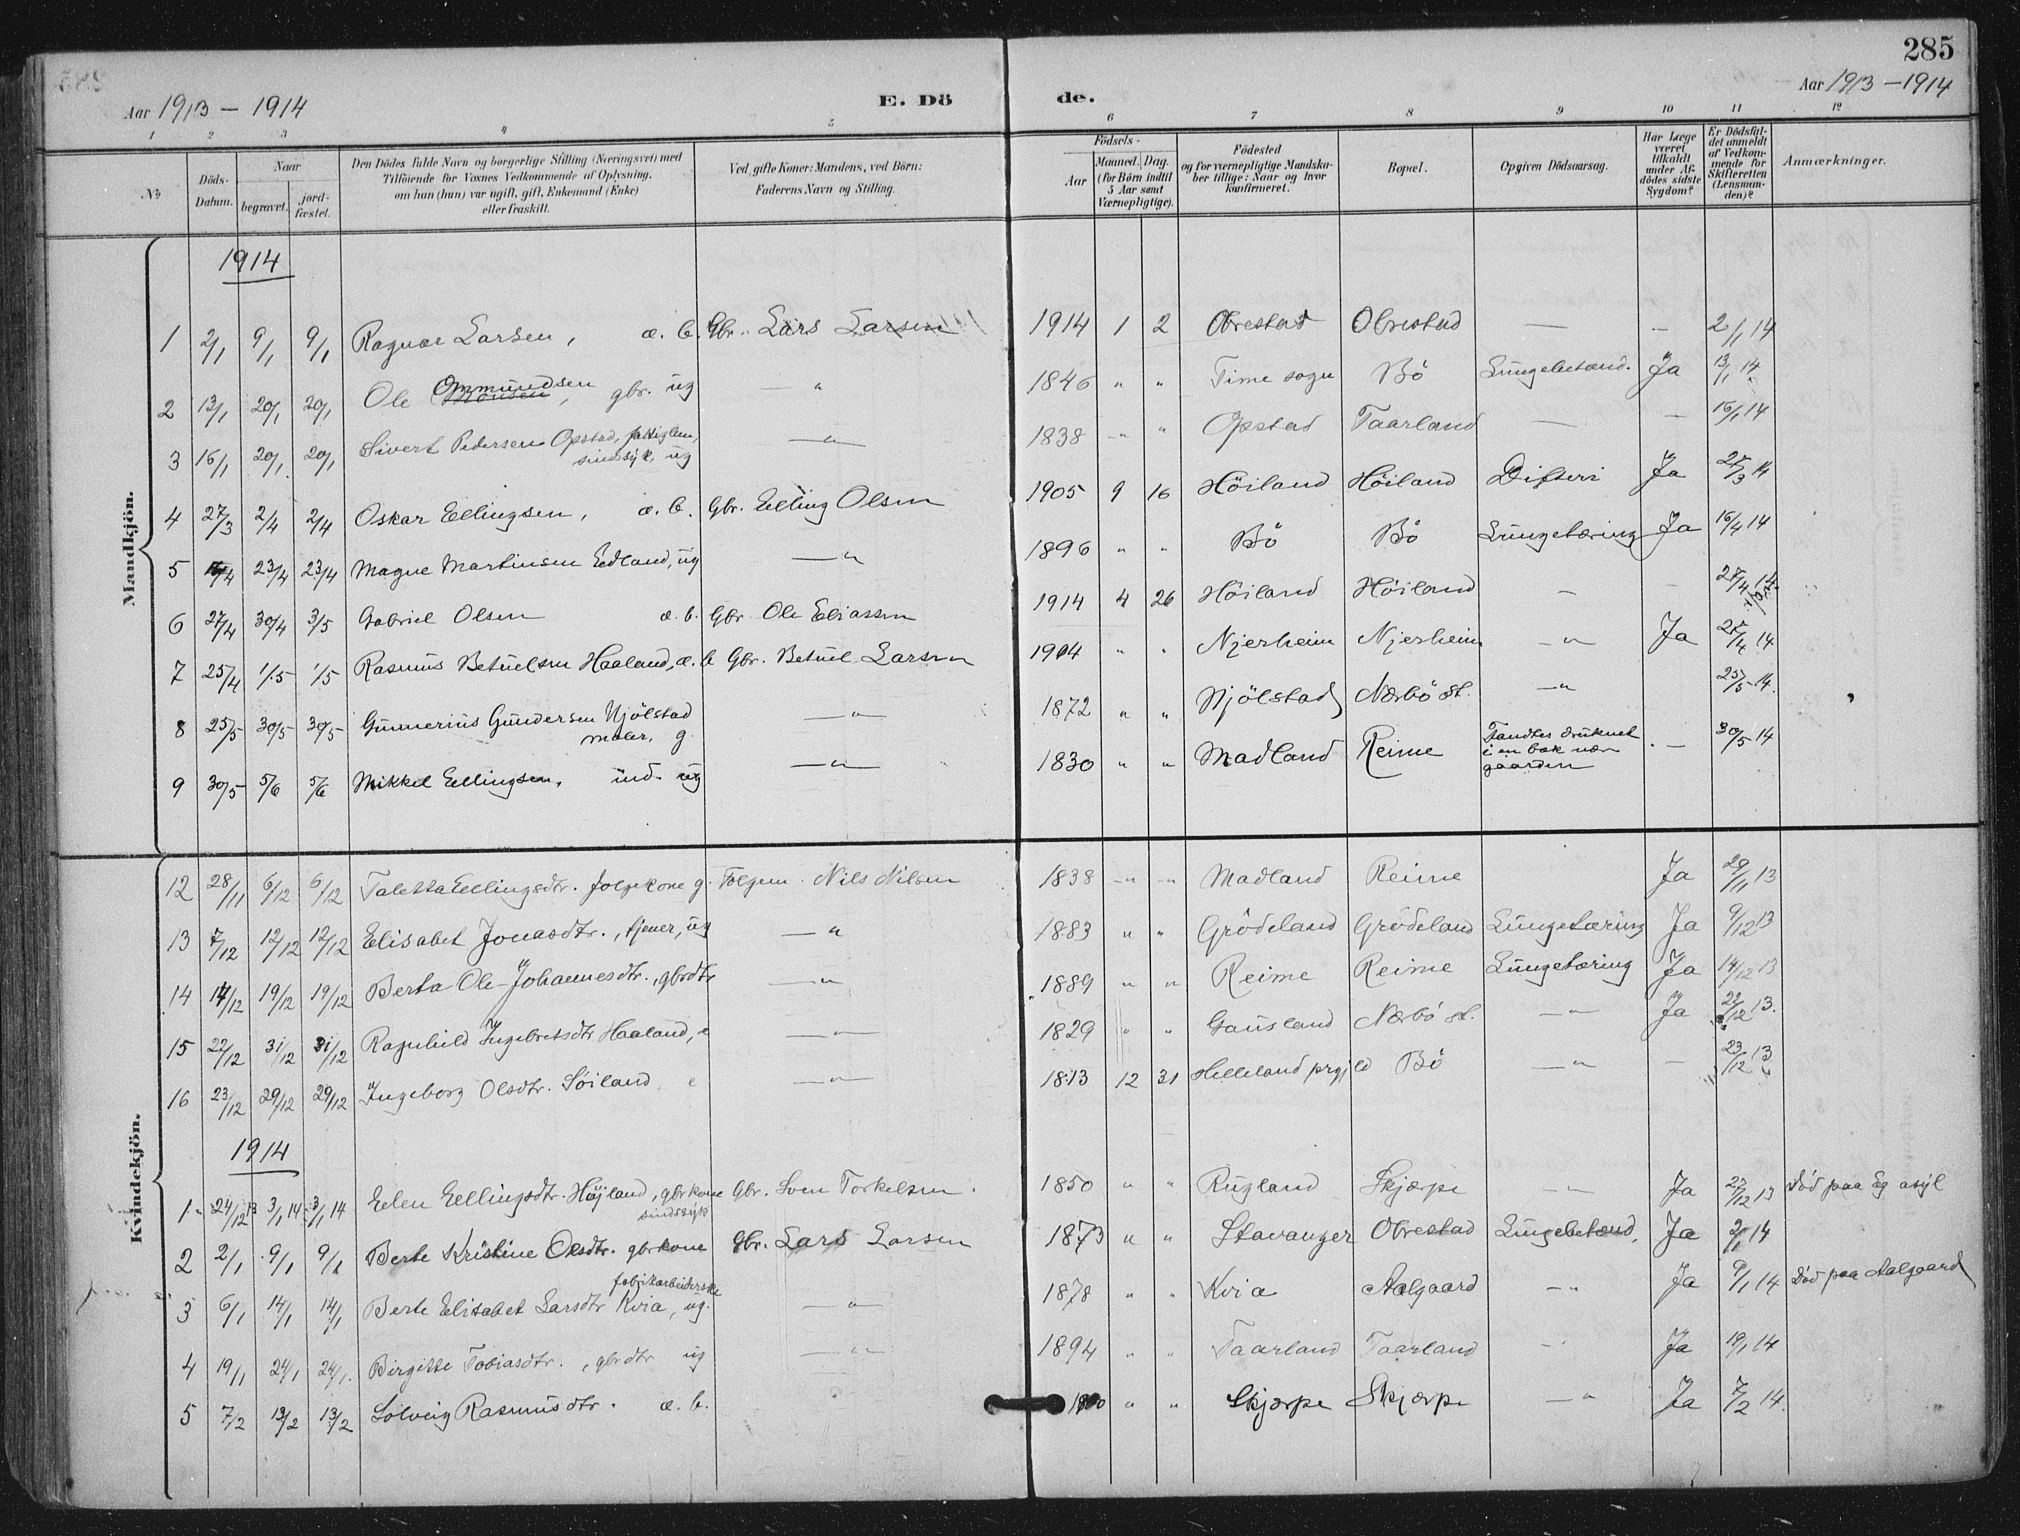 285
Aar 1913 - 1914 E. Dö de. Aar 1913 - 1914
1 2 3 4 5 6 7 8 9 10 11 12
No
Döds-Datum.
Naar
begravet.
jord-fæstet.
Den Dödes fulde Navn og borgerlige Stilling (Næringsvei) med
Tilföiende for Voxnes Vedkommende af Oplysning,
om han (hun) var ugift, gift, Enkemand (Enke)
eller fraskilt.
Ved gifte Koner: Mandens, ved Börn:
Faderens Navn og Stilling.
Födsels-
Aar
Maaned. Dag.
(for Börn indtil
5 Aar samt
Værnepligtige).
Födested
og for værnepligtige Mandska-
ber tillige: Naar og hvor
konfirmeret.
Bopæl.
Opgiven Dödsaarsag.
Har Læge
været
tilkaldt
under Af-
dödes sidste
Sygdom?
Er Dödsfal-
det anmeldt
af Vedkom-
mende for
Skifteretten
(Lensman-
den)?
Anmærkninger.
Mandkjön.
1914
1 2/1 9/1 9/1 Ragnar Larsen, æ. b. Gbr. Lars Larsen 1914 1 2 Obrestad Obrestad — — 2/1 14
2 13/1 20/1 20/1 Ole Ommundsen, gbr. ug — " 1846 " " Time sogn Bö Lungebetænd. Ja 13/1 14.
3 16/1 20/1 20/1 Sivert Pedersen Opstad, fattiglem, sindssyk, ug — " — 1838 " " Opstad Taarland — — 16/1 14
4 27/3 2/4 2/4 Oskar Ellingsen, æ. b. Gbr. Elling Olsen 1905 9 16 Höiland Höiland Difteri Ja 27/3 14
5 16/4 23/4 23/4 Magne Martinsen Edland, ug — " 1896 " " Bö Bö Lungetæring Ja 16/4 14
6 27/4 30/4 3/5 Gabriel Olsen æ. b. Gbr. Ole Eliassen 1914 4 26 Höiland Höiland — — 27/4 14
7 25/4 1/5 1/5 Rasmus Betuelsen Haaland, æ. b Gbr. Betuel Larsen 1904 " " Njerheim Njerheim — " Ja 25/4 14
8 25/5 30/5 30/5 Gunnerius Gundersen Njölstad maler, g. — " — 1872 " " Njölstad Nærbö st. — " 25/5 14.
9 30/5 5/6 5/6 Mikkel Ellingsen, ind. ug — " — 1830 " " Madland Reime Fandtes druknet i en bæk nær gaarden — 30/5 14
Kvindekjön.
12 28/11 6/12 6/12 Taletta Ellingsdtr. folgekone g. Folgem. Nils Nilsen 1838 " " Madland Reime Ja 29/11 13
13 7/12 12/12 12/12 Elisabet Jonasdtr., tjener, ug — " 1883 " " Grödeland Grödeland Lungetæring Ja 9/12 13
14 14/12 19/12 19/12 Berta Ole-Johannesdtr., gbrdtr — " 1889 " " Reime Reime Lungetæring Ja 14/12 13
15 22/12 31/12 31/12 Ragnhild Ingebretsdtr Haaland, e — " — 1829 " " Gausland Nærbö st. — " Ja 22/12 13.
16 23/12 29/12 29/12 Ingeborg Olsdtr. Söiland e — " — 1813 12 31 Helleland prgjld Bö — " — 23/12 13
1914
1 24/12 13 3/1 14 3/1 14 Elen Ellingsdtr. Höjland, gbrkone sindssyk Gbr. Sven Torkelsen. 1850 " " Rugland Skjærpe — " Ja 27/12 13 Död paa Eg asyl
2 2/1 9/1 9/1 Berte Kristine Olsdtr. gbrkone Gbr. Lars Larsen 1873 " " Stavanger Obrestad Lungebetænd. Ja 2/1 14
3 6/1 14/1 14/1 Berte Elisabet Larsdtr Kvia, fabrikarbeiderske ug. — " — 1878 " " Kvia Aalgaard — " Ja 9/1 14 Död paa Aalgaard
4 19/1 24/1 24/1 Birgitte Tobiasdtr., gbrdtr ug — " — 1894 " " Taarland Taarland — " Ja 19/1 14
5 7/2 13/2 13/2 Solveig Rasmusdtr. æ. b. " " Skjærpe Skjærpe — " Ja 7/2 14.